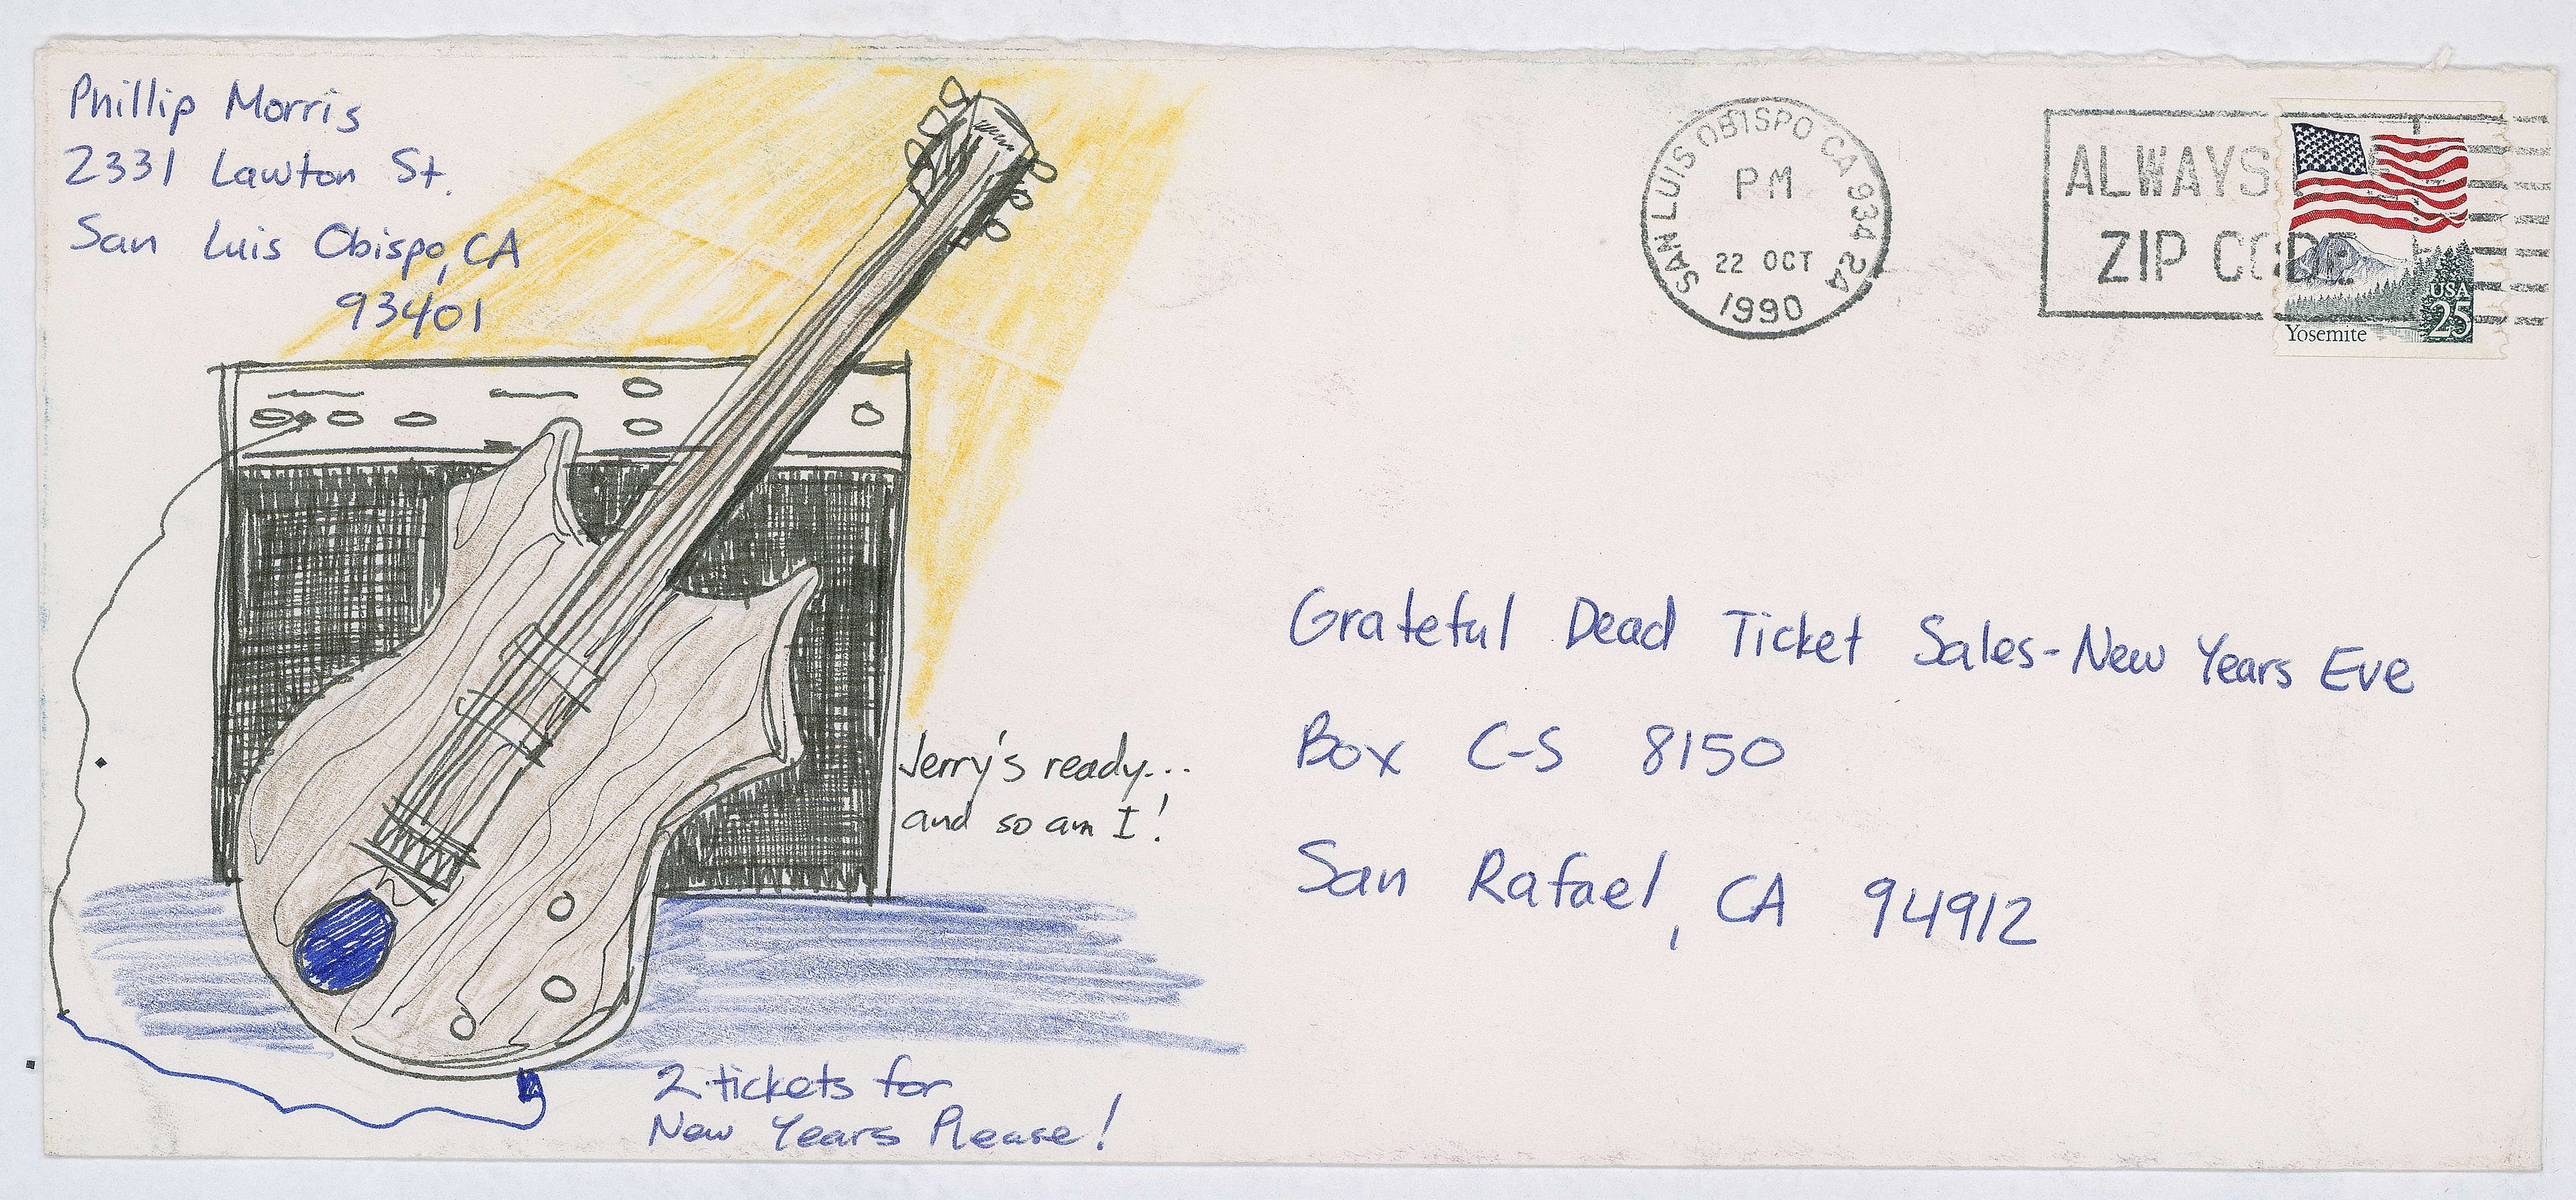 Phillip Morris
2331 Lawton St.
San Luis Obispo, CA
93401
SAN LUIS OBISPO CA 934 24
PM
22 OCT
1990
ALWAYS
ZIP CODE
USA
25
Yosemite
Jerry's ready...
and so am I!
Grateful Dead Ticket Sales-New Years Eve
Box C-S 8150
San Rafael, CA 94912
2 tickets for
New Years Please!